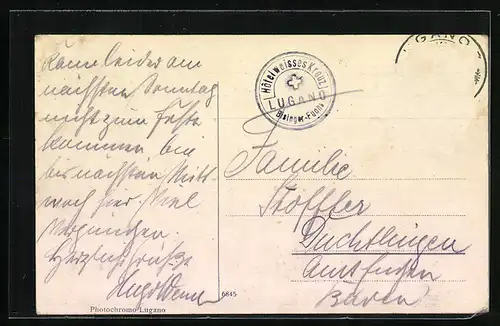 Kann leider am
nächsten Sonntag
nicht zum Feste
kommen bin
bis nächsten Mitt-
woch hier. Viel
Vergnügen.
Herzlich grüsst
Hugo
Hôtel weisses Kreuz
LUGANO
LUGANO
Familie
Stöffler
Duchtlingen
Amt
Baden
6645
Photochromo-Lugano